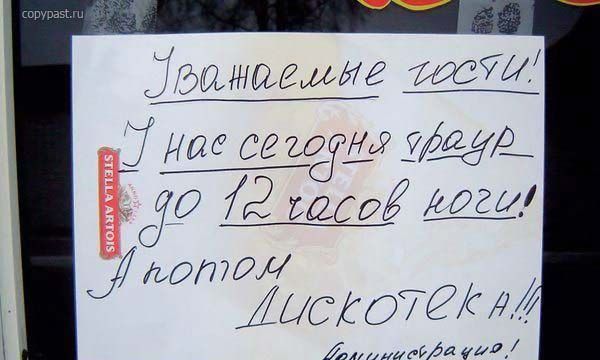 copypast.ru
Уважаемые гости!
У нас сегодня траур
STELLA ARTOIS
до 12 часов ночи!
А потом
Дискотека!!!
Администрация!